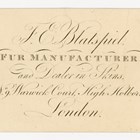 J. C. Blatspiel.
FUR MANUFACTURER
and Dealer in Skins,
No. 9, Warwick Court, High Holborn
London.